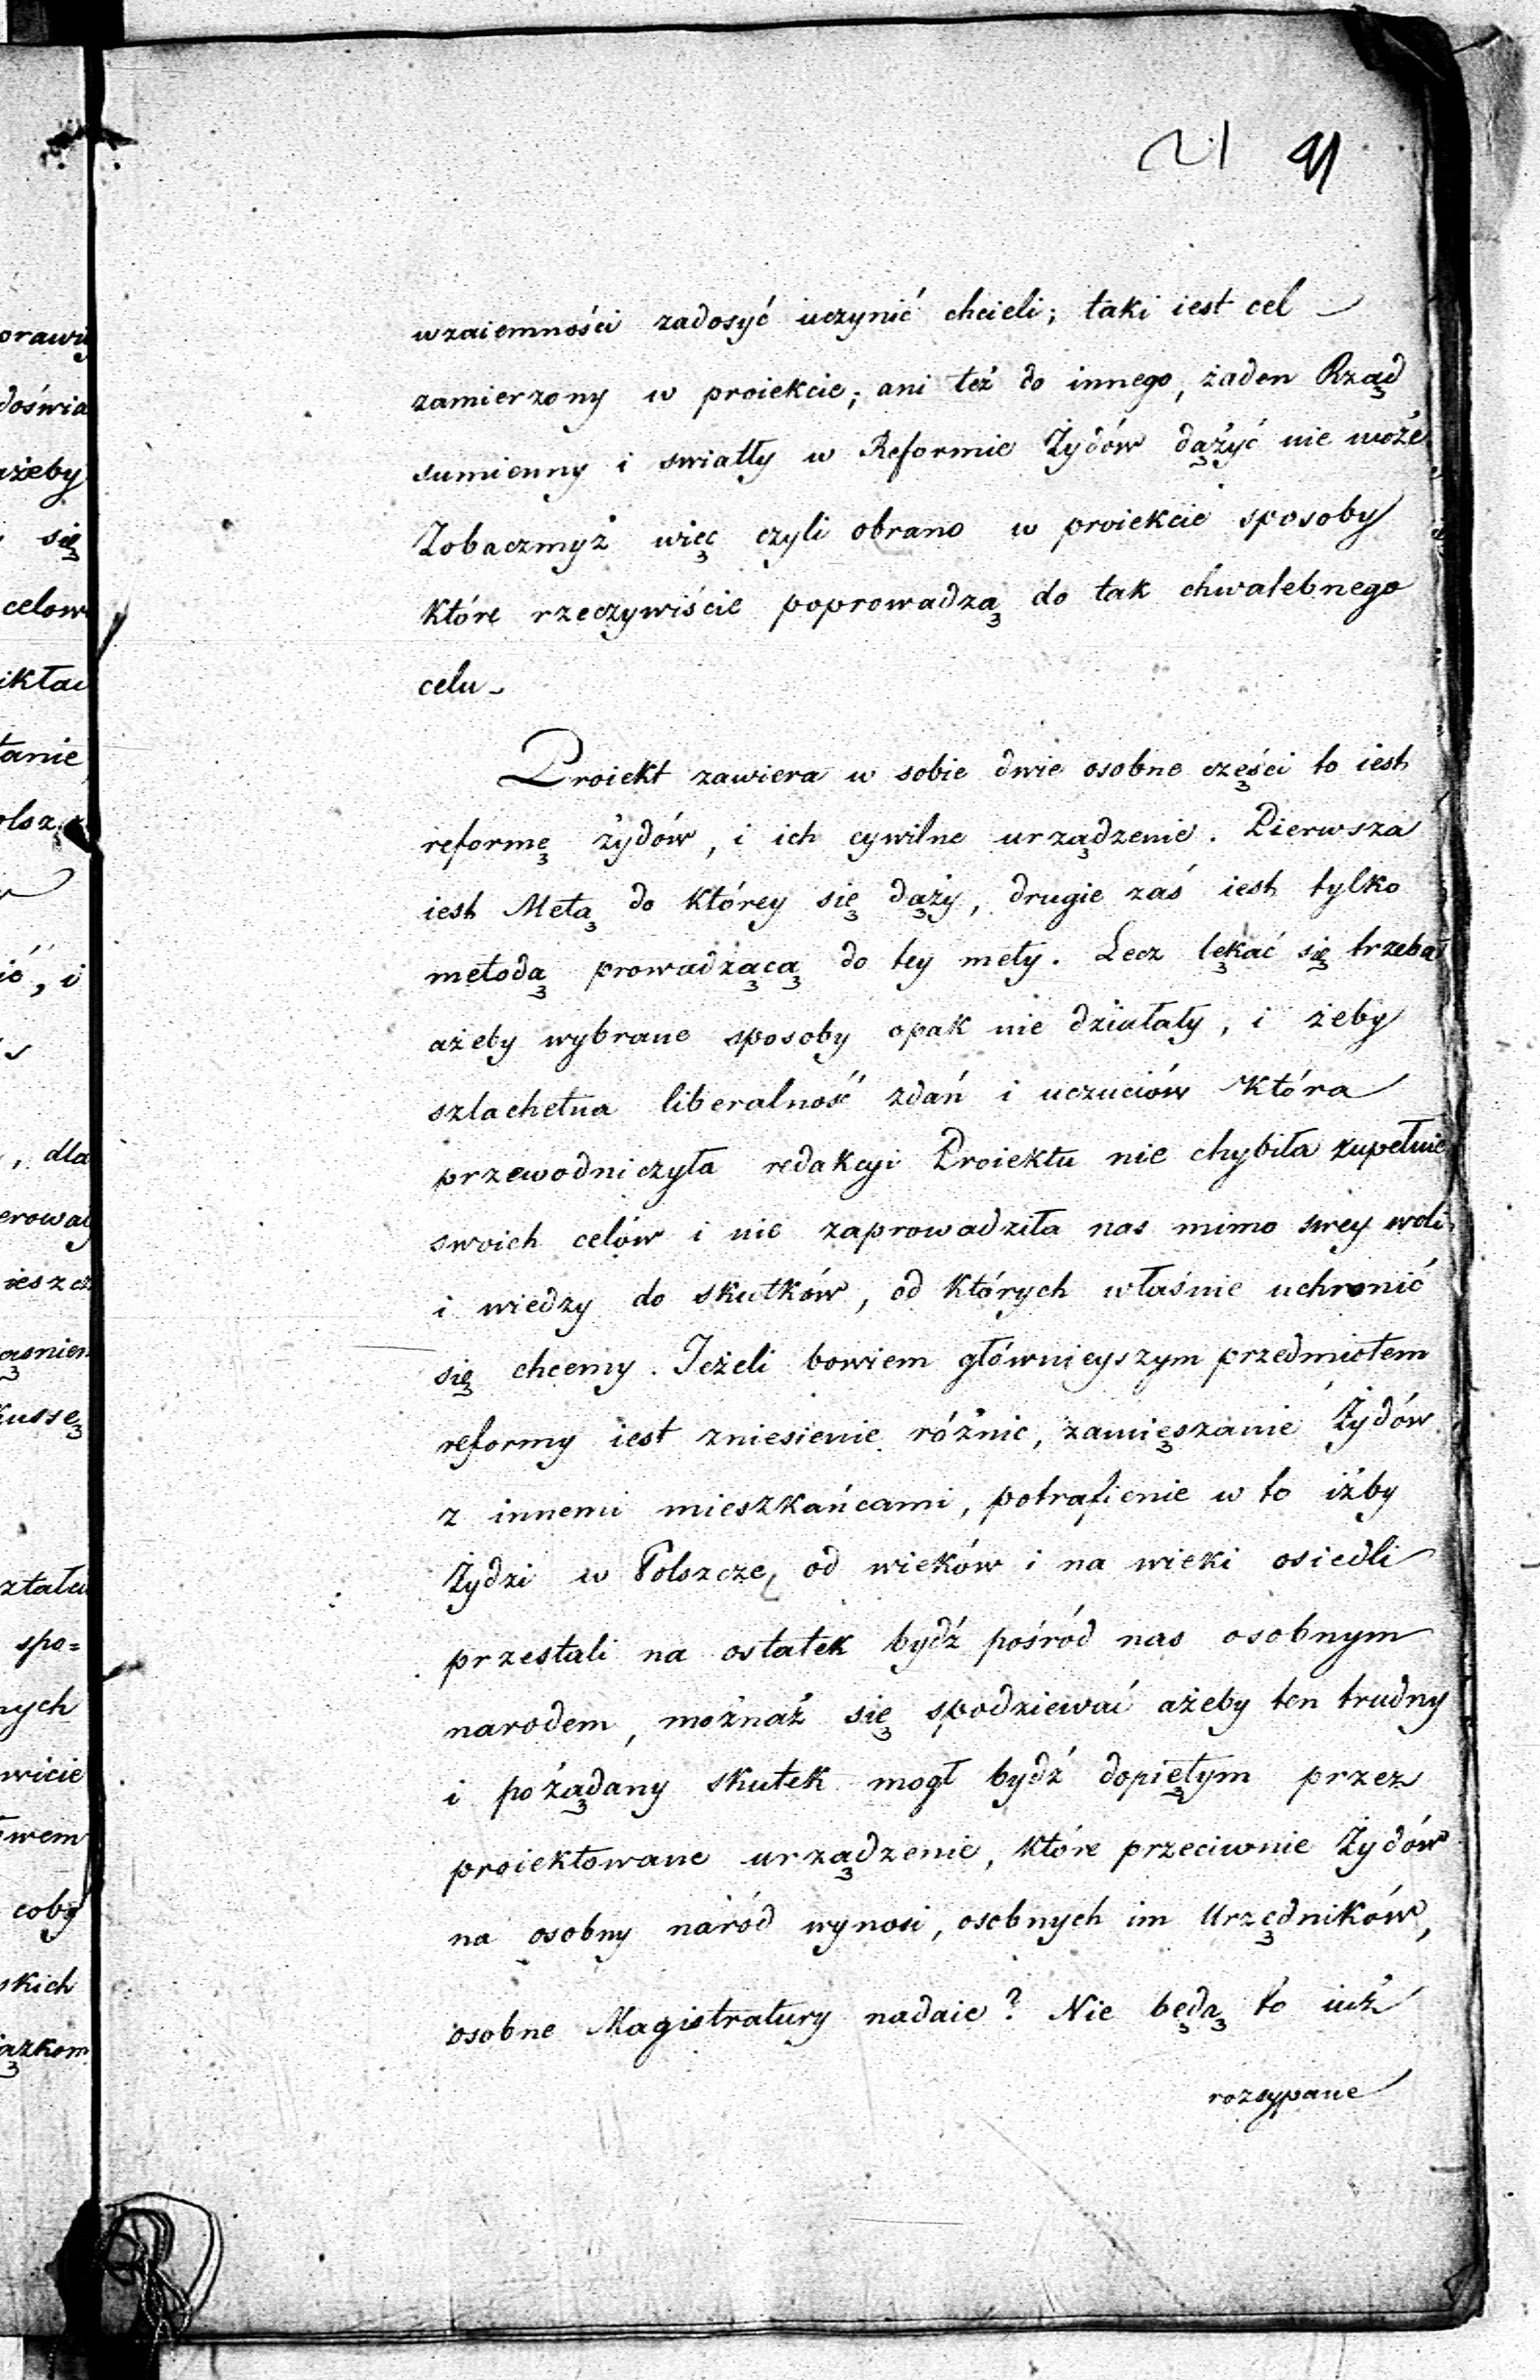 21 41
wzaiemności zadosyć uczynić chcieli; taki iest cel
zamierzony w proiekcie; ani też do innego, żaden Rząd
sumienny i swiatły w Reformie Żydów dążyć nie może
Zobaczmyż więc czyli obrano w proiekcie sposoby
które rzeczywiście poprowadzą do tak chwalebnego
celu.
Proiekt zawiera w sobie dwie osobne części to iest
reformę żydów, i ich cywilne urządzenie. Pierwsza
iest Metą do którey się dąży, drugie zaś iest tylko
metodą prowadzącą do tey mety. Lecz lękać się trzeba
ażeby wybrane sposoby opak nie działały, i żeby
szlachetna liberalność zdań i uczuciów która
przewodniczyła redakcyi Proiektu nie chybiła zupełnie
swoich celów i nie zaprowadziła nas mimo swey woli
i wiedzy do skutków, od których właśnie uchronić
się chcemy. Jeżeli bowiem główniejszym przedmiotem
reformy iest zniesienie różnic, zamięszanie Żydów
z innemi mieszkańcami, potrafienie w to iżby
Żydzi w Polszcze, od wieków i na wieki osiedli
przestali na ostatek bydź pośród nas osobnym
narodem, możnaż się spodziewać ażeby ten trudny
i pożądany skutek mogł bydź dopiętym przez
proiektowane urządzenie, które przeciwnie Żydów
na osobny naród wynosi, osobnych im Urzędników,
osobne Magistratury nadaie? Nie będą to iuż
rozsypane